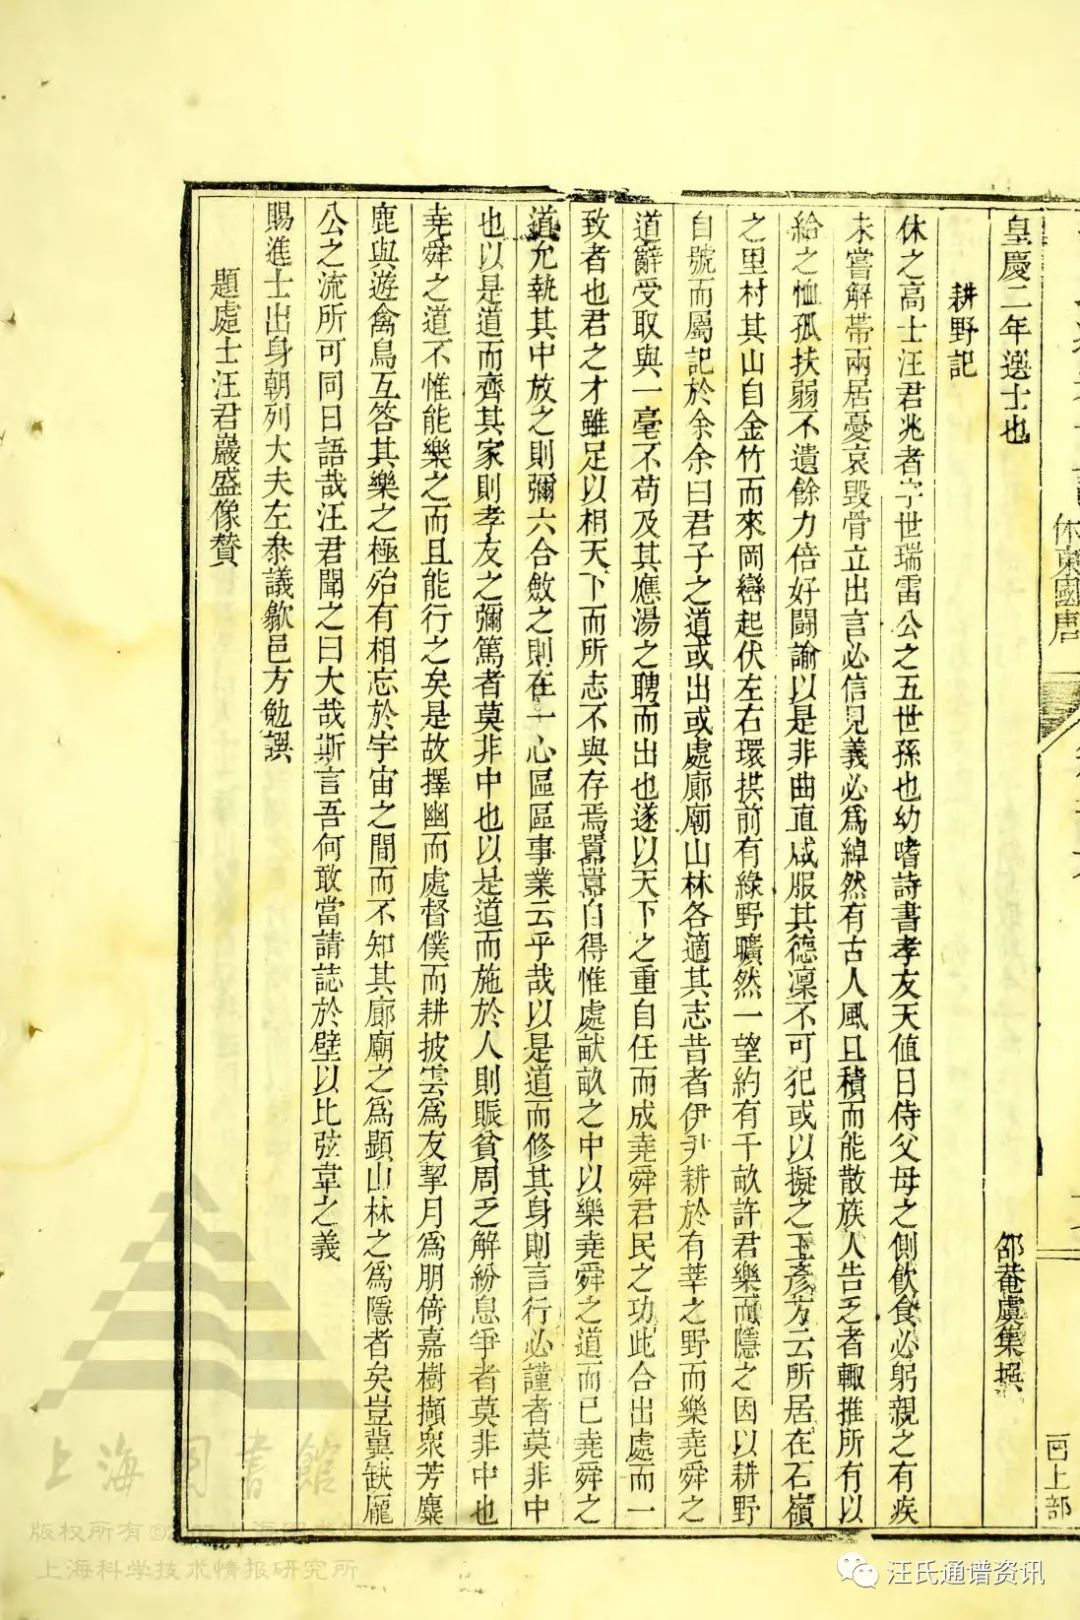 皇慶二年選士也
邵菴虞集撰
耕野記
休之高士汪君兆者字世瑞雷公之五世孫也幼嗜詩書孝友天值日侍父母之側飲食必躬親之有疾
未嘗解帶兩居憂哀毀骨立出言必信見義必為綽然有古人風且積而能散族人告乏者輙推所有以
給之恤孤扶弱不遺餘力倍好闘諭以是非曲直咸服其德凜不可犯或以擬之王彥方云所居在石嶺
之里村其山自金竹而來岡巒起伏左右環拱前有綠野曠然一望約有千畝許君樂而隱之因以耕野
自號而屬記於余余曰君子之道或出或處廊廟山林各適其志昔者伊尹耕於有莘之野而樂堯舜之
道辭受取與一毫不苟及其應湯之聘而出也遂以天下之重自任而成堯舜君民之功此合出處而一
致者也君之才雖足以相天下而所志不與存焉囂囂自得惟處畎畝之中以樂堯舜之道而已堯舜之
道允執其中放之則彌六合斂之則在一心區區事業云乎哉以是道而修其身則言行必謹者莫非中
也以是道而齊其家則孝友之彌篤者莫非中也以是道而施於人則賑貧周乏解紛息爭者莫非中也
堯舜之道不惟能樂之而且能行之矣是故擇幽而處督僕而耕披雲為友挈月為朋倚嘉樹擷衆芳麋
鹿與遊禽鳥互答其樂之極殆有相忘於宇宙之間而不知其廊廟之為顯山林之為隱者矣豈冀缺龐
公之流所可同日語哉汪君聞之曰大哉斯言吾何敢當請誌於壁以比弦韋之義
賜進士出身朝列大夫左叅議歙邑方勉譔
題處士汪君巖盛像贊
西上部
上海图書館
版权所有©
上海科学技术情报研究所
汪氏通谱资讯